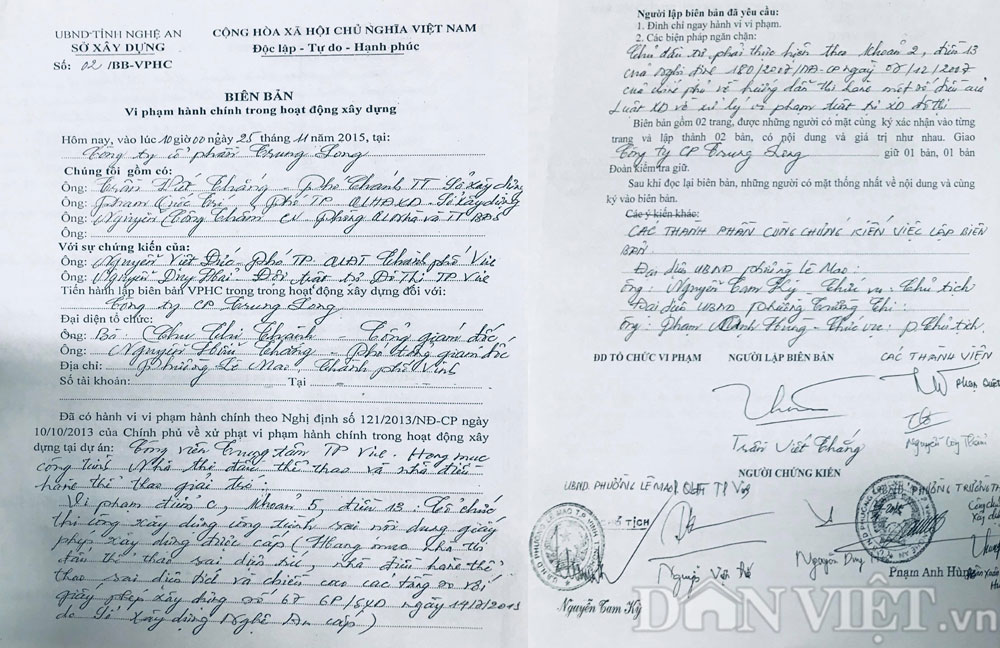 UBND TỈNH NGHỆ AN
SỞ XÂY DỰNG
Số: 02 /BB-VPHC
CỘNG HÒA XÃ HỘI CHỦ NGHĨA VIỆT NAM
Độc lập - Tự do - Hạnh phúc
BIÊN BẢN
Vi phạm hành chính trong hoạt động xây dựng
Hôm nay, vào lúc 10 giờ 00 ngày 25 tháng 11 năm 2015, tại:
Công ty cổ phần Trung Long
Chúng tôi gồm có:
Ông: Trần Viết Thắng - Phó Chánh TT - Sở xây dựng
Ông: Phạm Quốc - Phó TP QLHĐXD - Sở xây dựng
Ông: Nguyễn Công Thắm CV phòng QLNhà và TT BĐS
Với sự chứng kiến của:
Ông: Nguyễn Viết Đức Phó TP QLĐT Thành phố Vinh
Ông: Nguyễn Duy Đội trật tự Đô Thị TP Vinh
Tiến hành lập biên bản VPHC trong trong hoạt động xây dựng đối với:
Công ty CP Trung Long
Đại diện tổ chức:
Ông: Bà: Chu Thị Thành - Tổng giám đốc
Ông: Nguyễn Hữu Thắng - Phó tổng giám đốc
Địa chỉ: Phường Lê Mao, Thành phố Vinh
Số tài khoản: Tại
Đã có hành vi vi phạm hành chính theo Nghị định số 121/2013/NĐ-CP ngày
10/10/2013 của Chính phủ về xử phạt vi phạm hành chính trong hoạt động xây
dựng tại dự án: Công viên Trung tâm TP Vinh. Hạng mục
công trình Nhà thi đấu thể thao và nhà điều
hành thể thao giải trí:
Vi phạm điểm c, khoản 5, điều 13: Tổ chức
thi công xây dựng công trình sai nội dung giấy
phép xây dựng được cấp (Hạng mục nhà thi
đấu thể thao sai diện tích, nhà điều hành thể
thao sai diện tích và chiều cao các tầng so với
giấy phép xây dựng số 67 GP/SXD ngày
do Sở Xây dựng Nghệ An cấp)
Người lập biên bản đã yêu cầu:
1. Đình chỉ ngay hành vi vi phạm.
2. Các biện pháp ngăn chặn:
Chủ đầu tư phải thực hiện theo khoản 2, điều 13
của nghị định 180/2007/NĐ-CP ngày 07/12/2007
của chính phủ về hướng dẫn thi hành một số điều của
Luật XD về xử lý vi phạm trật tự XD đô thị
Biên bản gồm 02 trang, được những người có mặt cùng ký xác nhận vào từng
trang và lập thành 02 bản, có nội dung và giá trị như nhau. Giao
Công Ty CP Trung Long giữ 01 bản, 01 bản
Đoàn kiểm tra giữ.
Sau khi đọc lại biên bản, những người có mặt thống nhất về nội dung và cùng
ký vào biên bản.
Các ý kiến khác:
CÁC THÀNH PHẦN CÙNG CHỨNG KIẾN VIỆC LẬP BIÊN
BẢN
Đại diện UBND phường Lê Mao:
Ông: Nguyễn Tam Kỳ - Chức vụ: Chủ tịch
Đại diện UBND phường Trường Thi:
Ông: Phạm Anh Hùng - Chức vụ: P Chủ tịch.
ĐD TỔ CHỨC VI PHẠM NGƯỜI LẬP BIÊN BẢN CÁC THÀNH VIÊN
Trần Viết Thắng
NGƯỜI CHỨNG KIẾN
UBND. PHƯỜNG LÊ MAO
CHỦ TỊCH
Nguyễn Tam Kỳ
Phạm Anh Hùng
DÂN VIỆT.vn